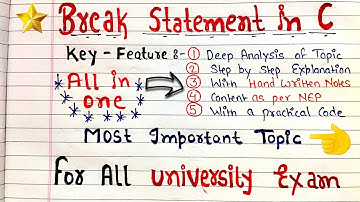 Break Statement in C
Key - Feature :- ① Deep Analysis of Topic
② Step by Step Explanation
③ With Hand Written Notes
④ Content as per NEP
⑤ With a practical Code
All in
one
Most Important Topic
For All university Exam